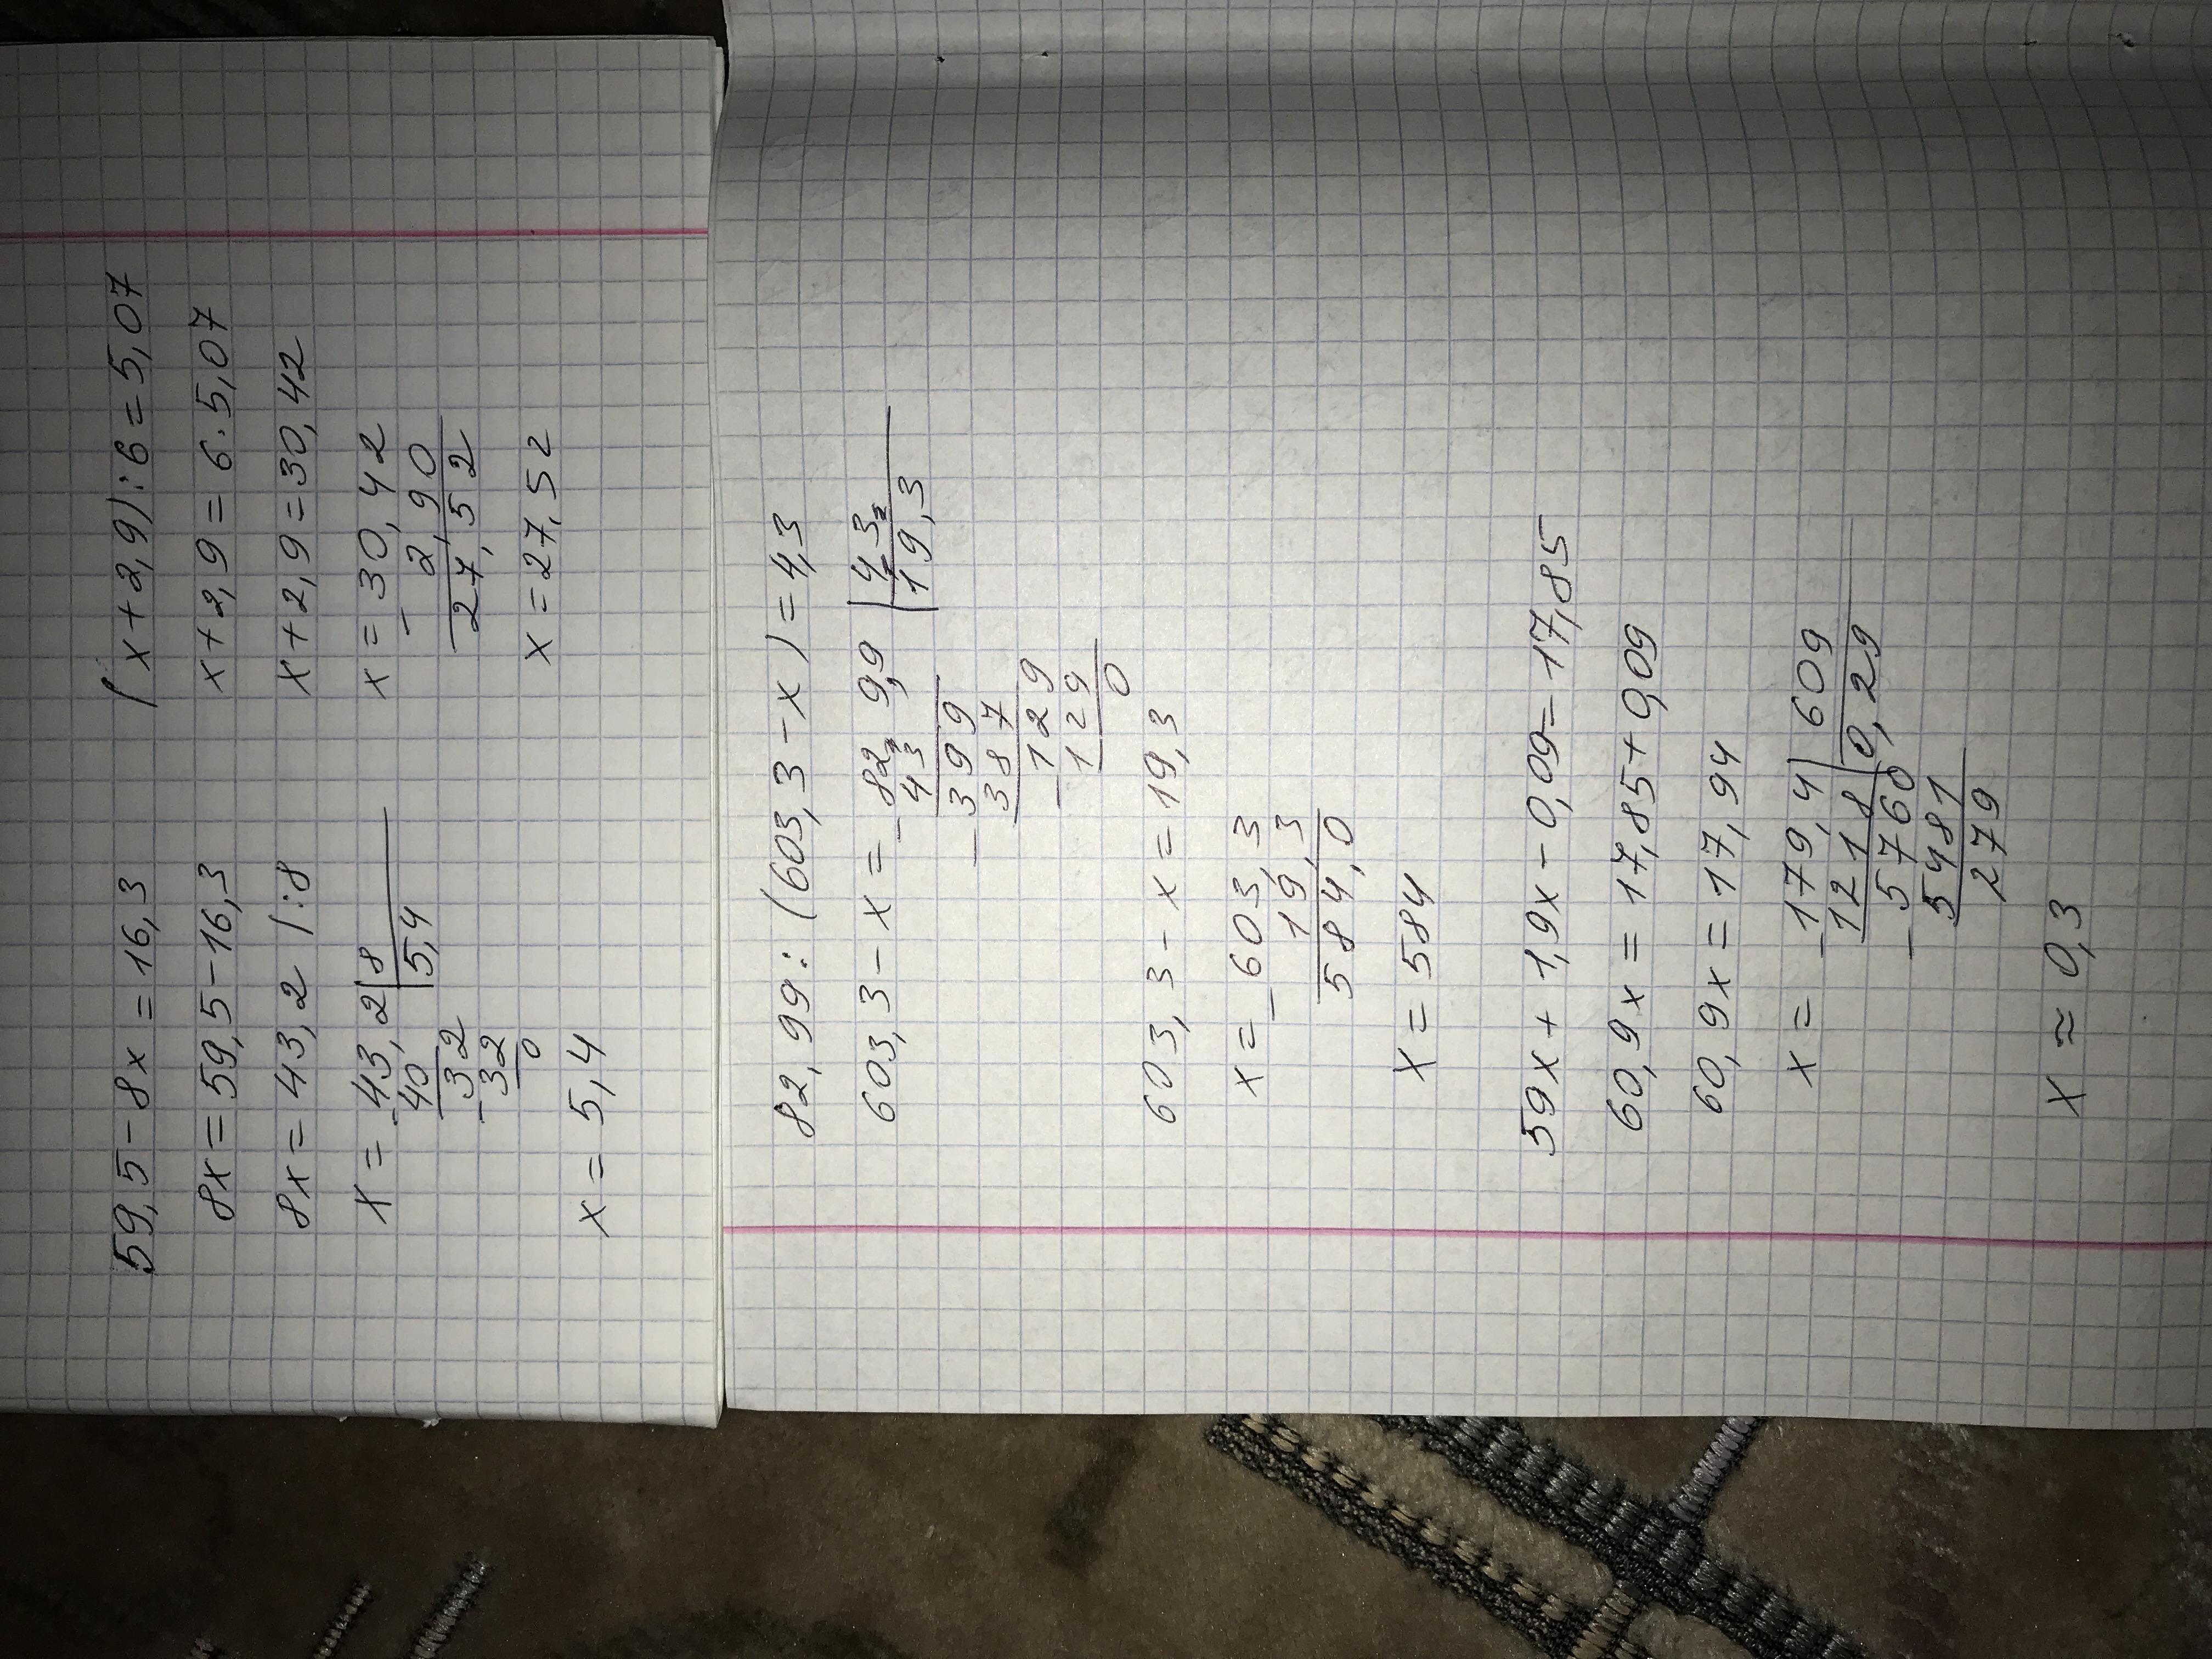 59,5-8x=16,3
8x=59,5-16,3
8x=43,2 |:8
x=43,2 | 8
- 40 5,4
- 32
32
0
x=5,4
(x+2,9):6=5,07
x+2,9=6·5,07
x+2,9=30,42
x=30,42
- 2,90
27,52
x=27,52
82,99:(603,3-x)=4,3
603,3-x=-82,9,9 | 4,3,
43 19,3
-399
387
-129
129
0
603,3-x=19,3
x=-603,3
19,3
584,0
x=584
59x+1,9x-0,09=17,85
60,9x=17,85+0,09
60,9x=17,94
x=-179,4 | 609
1218 0,29
-5760
5481
279
x≈0,3